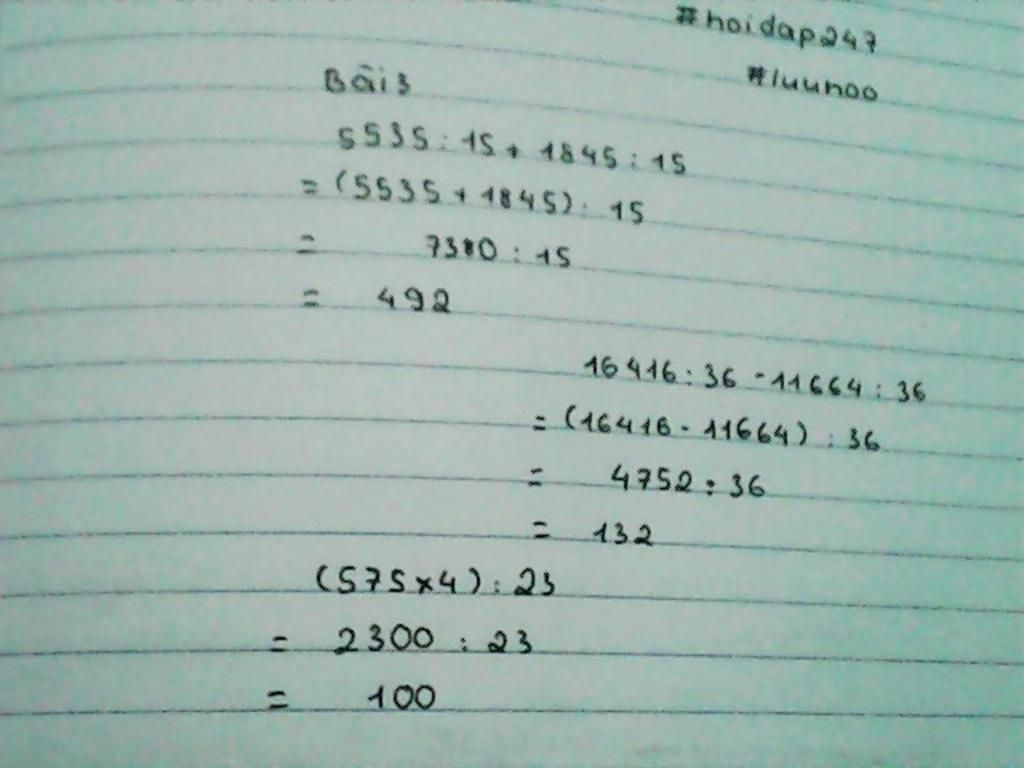 #hoidap247
#luunoo
Bài 3
5535 : 15 + 1845 : 15
= (5535 + 1845) : 15
= 7380 : 15
= 492
16416 : 36 - 11664 : 36
= (16416 - 11664) : 36
= 4752 : 36
= 132
(575 x 4) : 23
= 2300 : 23
= 100